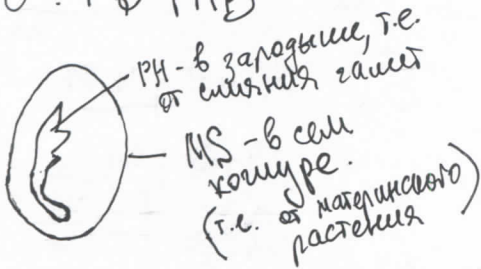 РН - в зародыше, т.е.
от слияния гамет
MS - в сем
кожуре.
(т.е. от материнского
растения)